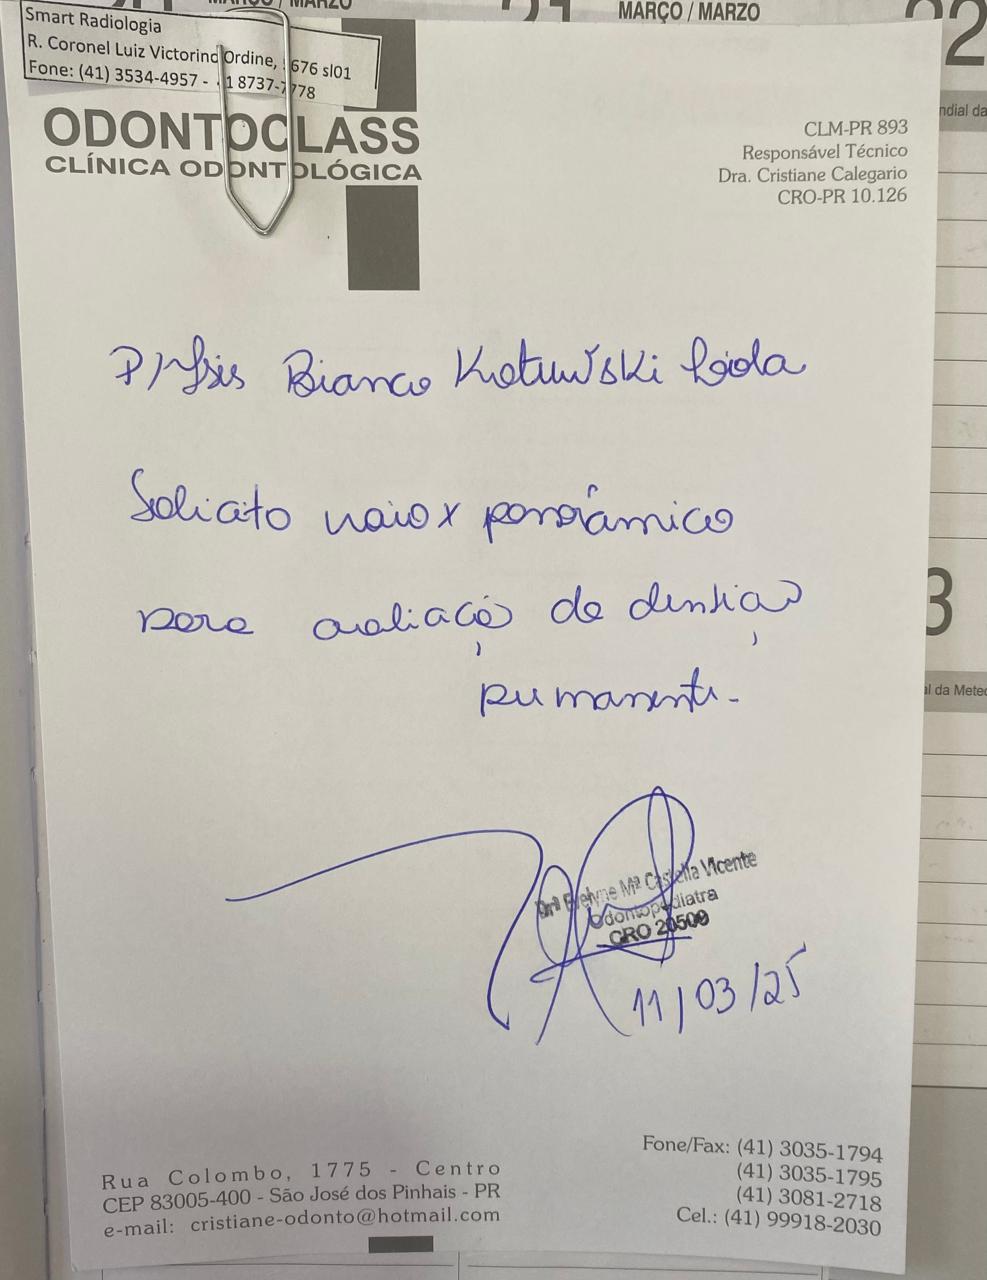 MARÇO / MARZO
MARÇO / MARZO
22
Smart Radiologia
R. Coronel Luiz Victorino Ordine, 676 sl01
Fone: (41) 3534-4957 - 8737-7778
ODONTOCLASS
CLÍNICA ODONTOLÓGICA
CLM-PR 893
Responsável Técnico
Dra. Cristiane Calegario
CRO-PR 10.126
ndial da
P/ Bianca
Solicito raio x panorâmico
para avaliação da dentição
permanente.
3
al da Mete
Drª Evelyne Mª Castella Vicente
Odontopediatra
CRO 20509
11/03/25
Rua Colombo, 1775 - Centro
CEP 83005-400 - São José dos Pinhais - PR
e-mail: cristiane-odonto@hotmail.com
Fone/Fax: (41) 3035-1794
(41) 3035-1795
(41) 3081-2718
Cel.: (41) 99918-2030